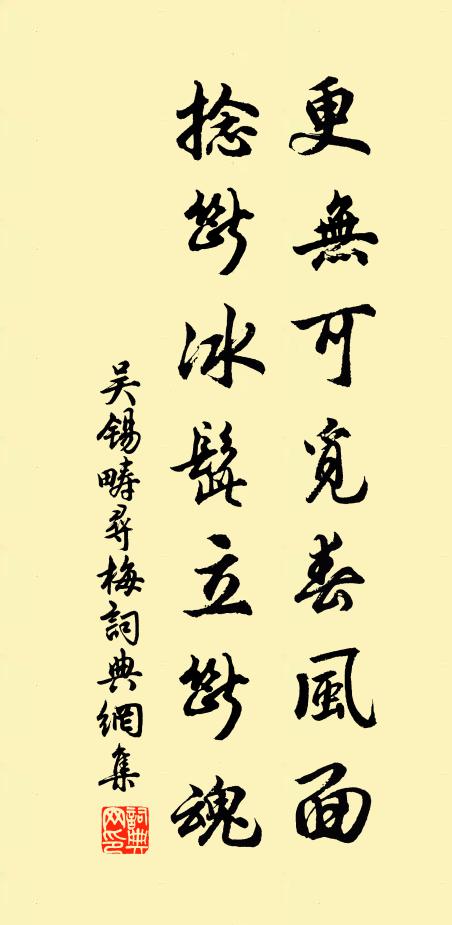 更無可覓春風面
捻斷冰髭立斷魂
吴錫疇尋梅詞典網集
詞典網印